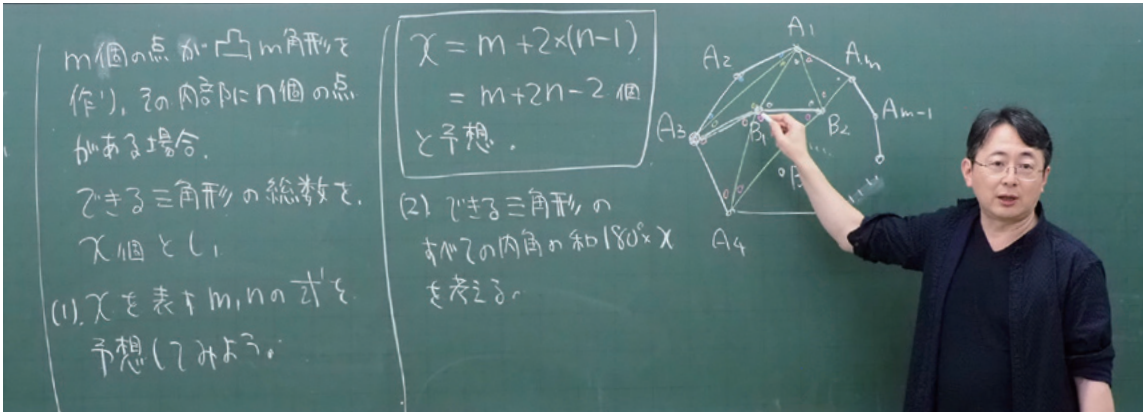 m個の点が凸m角形を
作り、その内部にn個の点
がある場合、
できる三角形の総数を、
x個とし、
(1). xを表すm,nの式を
予想してみよう。
x = m + 2×(n-1)
= m+2n-2 個
と予想.
(2). できる三角形の
すべての内角の和180°×x
を考える。
A1
A2
Am
Am-1
A3
B1
B2
B
A4